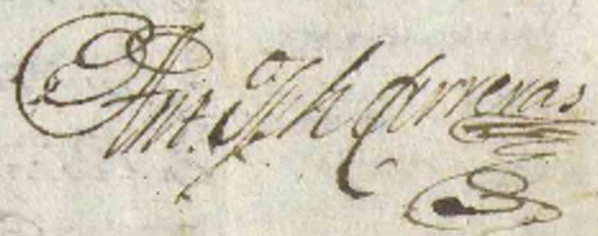 Ant. Jph Carreras